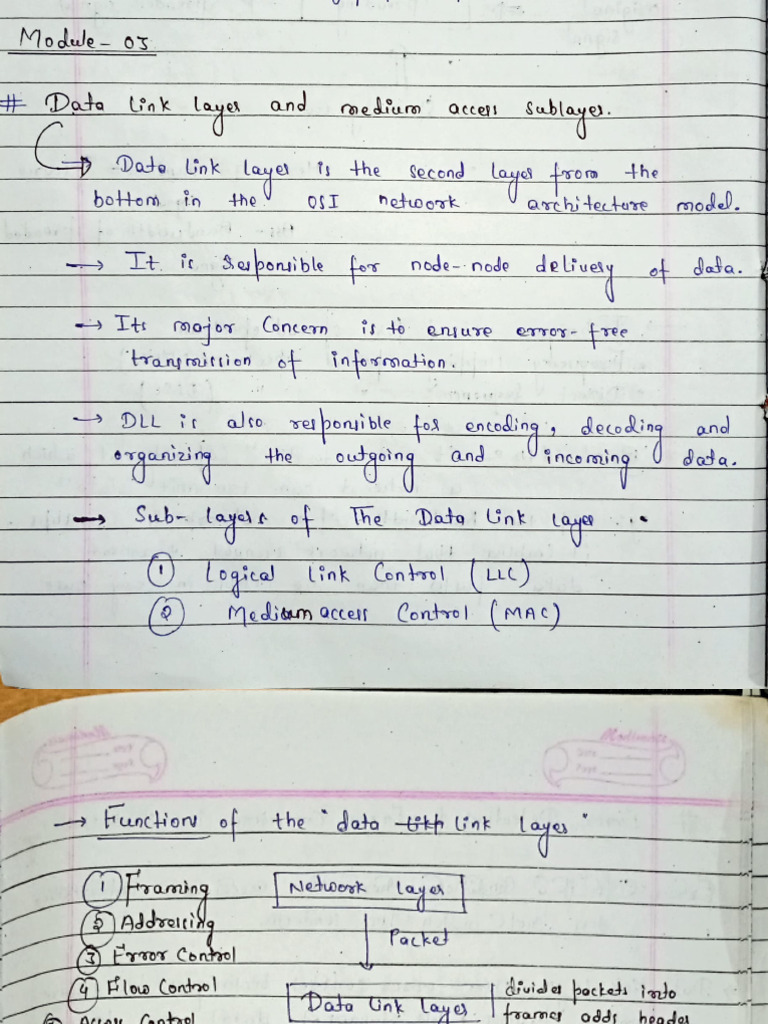 Module - 03
# Data link layer and medium access sublayer.
→ Data link layer is the second layer from the
bottom in the OSI network architecture model.
→ It is responsible for node-node delivery of data.
→ Its major concern is to ensure error-free
transmission of information.
→ DLL is also responsible for encoding, decoding and
organizing the outgoing and incoming data.
→ Sub-layers of The Data link layer
① Logical Link Control (LLC)
② Medium access Control (MAC)
→ Function of the "data link layer"
① Framing
Network layer
② Addressing
Packet
③ Error Control
④ Flow Control
Data link layer
divides packets into
frames adds header
Access Control